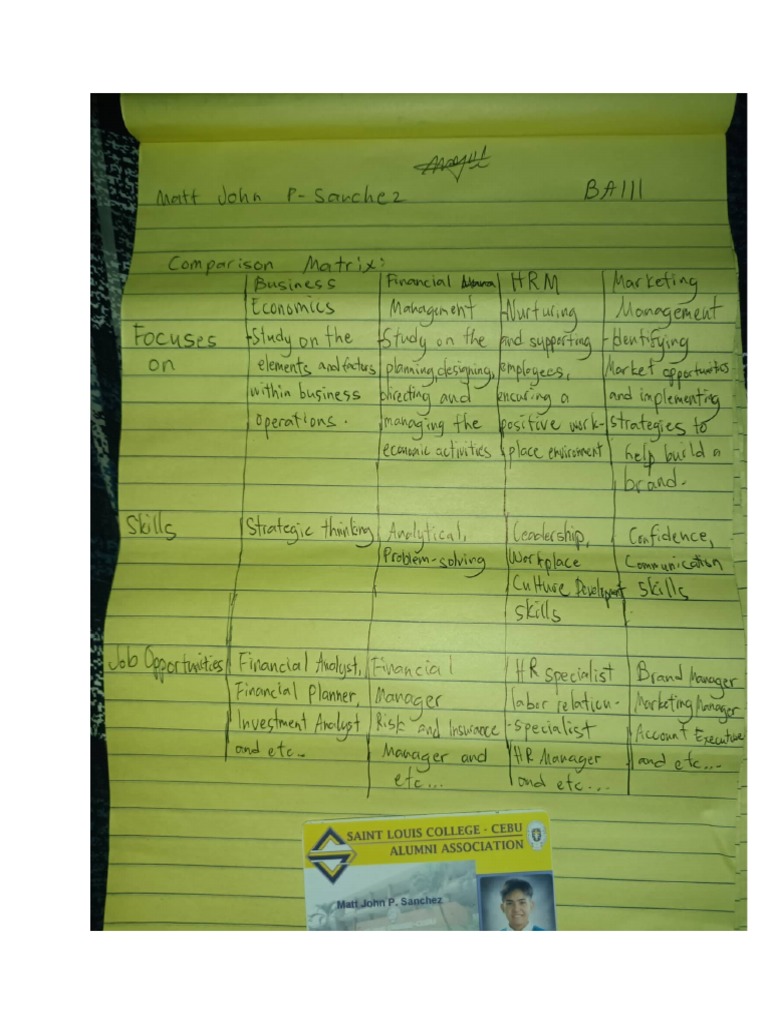 Matt John P. Sanchez BA111
Comparison Matrix:
Business Financial HRM Marketing
Economics Management -Nurturing Management
Focuses -Study on the -Study on the and supporting -Identifying
on elements and factors planning, designing, employees, Market opportunities
within business directing and encuring a and implementing
operations. managing the positive work- strategies to
economic activities place environment help build a
brand.
Skills Strategic thinking Analytical, Leadership, Confidence,
Problem-solving Workplace Communication
Culture Development skills
skills
Job Opportunities Financial Analyst, Financial HR specialist Brand Manager
Financial Planner, Manager labor relation- Marketing Manager
Investment Analyst Risk and Insurance -specialist Account Executive
and etc... Manager and HR Manager and etc....
etc... and etc....
SAINT LOUIS COLLEGE - CEBU
ALUMNI ASSOCIATION
Matt John P. Sanchez